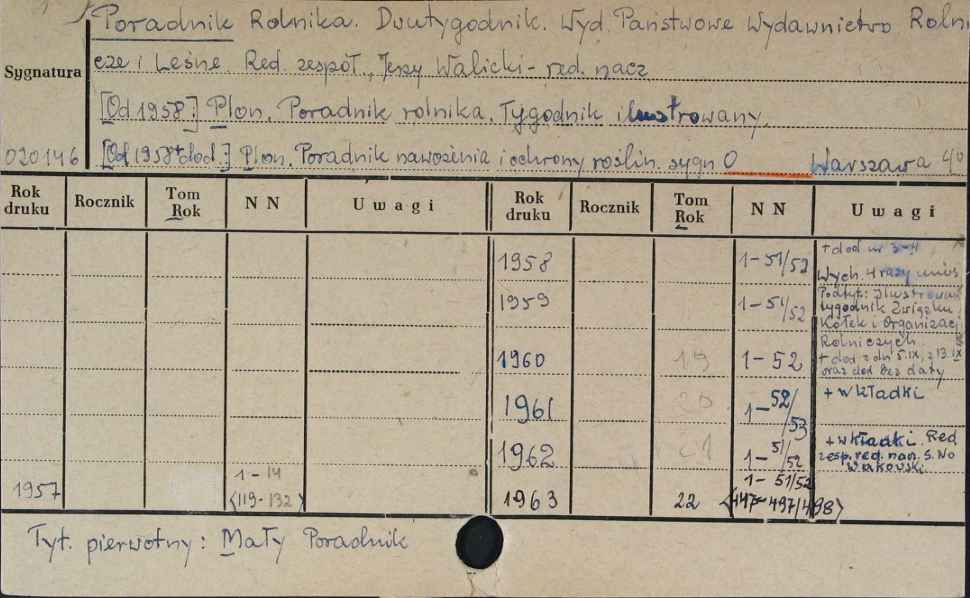 Poradnik Rolnika. Dwutygodnik. Wyd. Państwowe Wydawnictwo Rolni
cze i Leśne. Red. zespół., Jerzy Walicki - red. nacz
Sygnatura
[Od 1958:] Plon. Poradnik rolnika. Tygodnik ilustrowany.
020146 [Od 1958 + dod.:] Plon. Poradnik nawożenia i ochrony roślin. sygn O Warszawa 4/0
Rok druku Rocznik Tom Rok N N Uwagi Rok druku Rocznik Tom Rok N N Uwagi
1958 1-51/52 + dod nr 3-4
Wych. 4 razy
1959 1-51/52 Podtyt: Ilustrowany
tygodnik Związku
Kółek i Organizacj
Rolniczych.
1960 19 1-52 + dod z dn 5.IX, z 13.IX
oraz dod bez daty
1961 20 1-52/53 + wkładki
1962 21 1-51/52 + wkładki. Red
zesp. red. nacz. S. No
wakowski
1957 1-14 <119-132>
1963 22 1-51/52 <447-497/498>
Tyt. pierwotny: Mały Poradnik